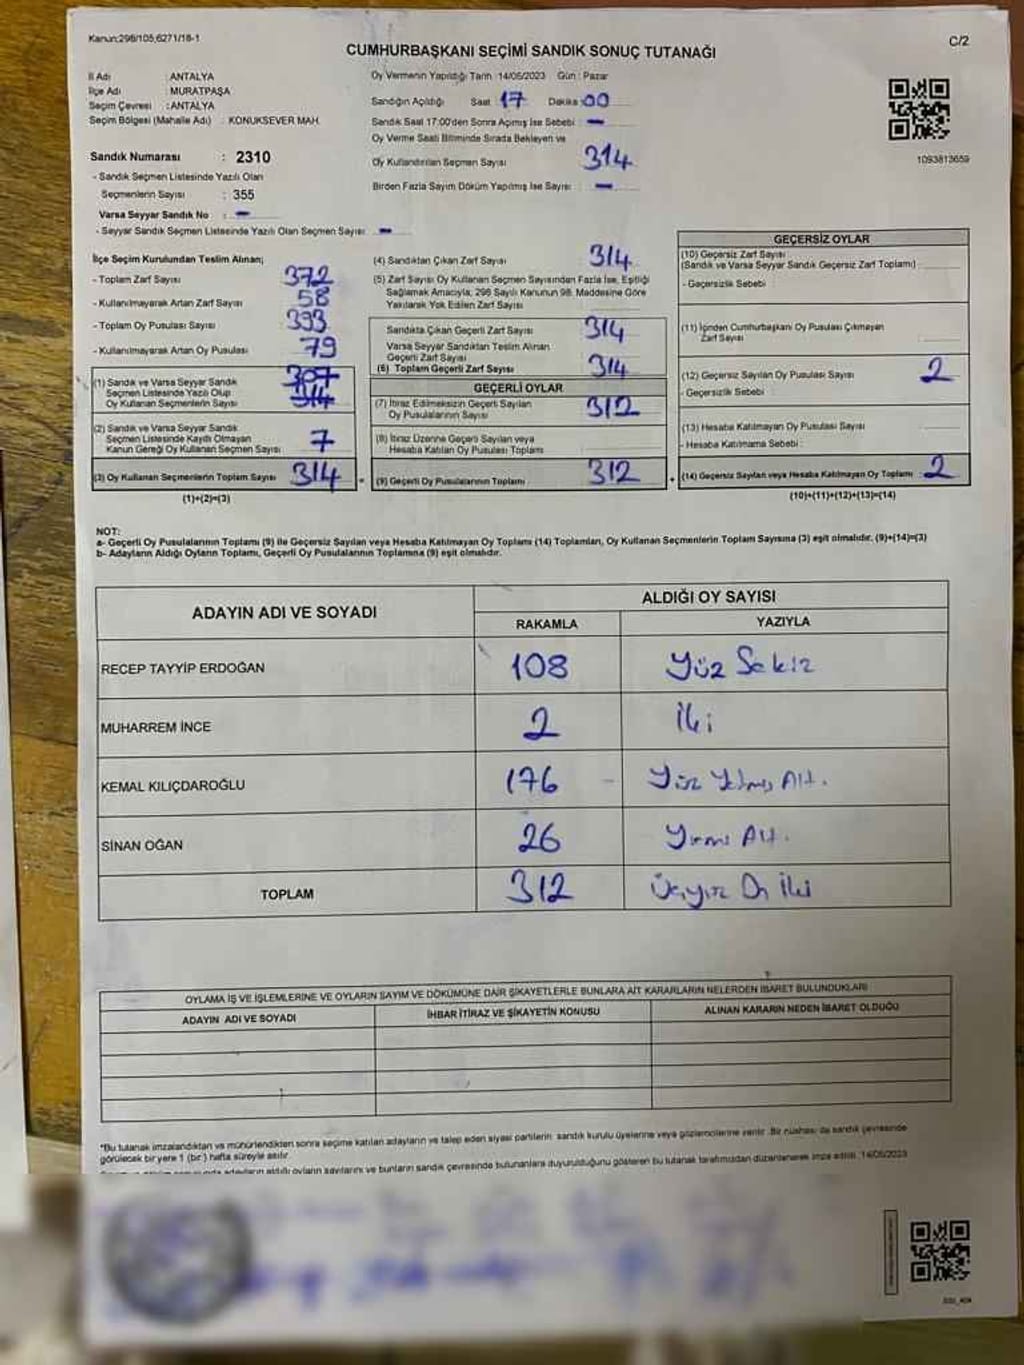 Kanun:298/105,6271/18-1
C/2
CUMHURBAŞKANI SEÇİMİ SANDIK SONUÇ TUTANAĞI
İl Adı : ANTALYA
İlçe Adı : MURATPAŞA
Seçim Çevresi : ANTALYA
Seçim Bölgesi (Mahalle Adı) : KONUKSEVER MAH.
Sandık Numarası : 2310
- Sandık Seçmen Listesinde Yazılı Olan
Seçmenlerin Sayısı : 355
Varsa Seyyar Sandık No : -
- Seyyar Sandık Seçmen Listesinde Yazılı Olan Seçmen Sayısı : -
Oy Vermenin Yapıldığı Tarih : 14/05/2023 Gün : Pazar
Sandığın Açıldığı Saat : 17 Dakika : 00
Sandık Saat 17:00'den Sonra Açımış İse Sebebi : -
Oy Verme Saati Bitiminde Sırada Bekleyen ve
Oy Kullandırılan Seçmen Sayısı 314
Birden Fazla Sayım Döküm Yapılmış İse Sayısı : -
1093813659
İlçe Seçim Kurulundan Teslim Alınan;
- Toplam Zarf Sayısı 372
- Kullanılmayarak Artan Zarf Sayısı 58
- Toplam Oy Pusulası Sayısı 393
- Kullanılmayarak Artan Oy Pusulası 79
(1) Sandık ve Varsa Seyyar Sandık
Seçmen Listesinde Yazılı Olup
Oy Kullanan Seçmenlerin Sayısı 307 314
(2) Sandık ve Varsa Seyyar Sandık
Seçmen Listesinde Kayıtlı Olmayan
Kanun Gereği Oy Kullanan Seçmen Sayısı 7
(3) Oy Kullanan Seçmenlerin Toplam Sayısı 314
(1)+(2)=(3)
(4) Sandıktan Çıkan Zarf Sayısı 314
(5) Zarf Sayısı Oy Kullanan Seçmen Sayısından Fazla İse, Eşitliği
Sağlamak Amacıyla, 298 Sayılı Kanunun 98. Maddesine Göre
Yakılarak Yok Edilen Zarf Sayısı
Sandıkta Çıkan Geçerli Zarf Sayısı 314
Varsa Seyyar Sandıktan Teslim Alınan
Geçerli Zarf Sayısı
(6) Toplam Geçerli Zarf Sayısı 314
GEÇERLİ OYLAR
(7) İtiraz Edilmeksizin Geçerli Sayılan
Oy Pusulalarının Sayısı 312
(8) İtiraz Üzerine Geçerli Sayılan veya
Hesaba Katılan Oy Pusulaları Toplamı
= (9) Geçerli Oy Pusulalarının Toplamı 312
GEÇERSİZ OYLAR
(10) Geçersiz Zarf Sayısı
(Sandık ve Varsa Seyyar Sandık Geçersiz Zarf Toplamı) :
- Geçersizlik Sebebi :
(11) İçinden Cumhurbaşkanı Oy Pusulası Çıkmayan
Zarf Sayısı
(12) Geçersiz Sayılan Oy Pusulası Sayısı : 2
- Geçersizlik Sebebi :
(13) Hesaba Katılmayan Oy Pusulası Sayısı
- Hesaba Katılmama Sebebi :
+ (14) Geçersiz Sayılan veya Hesaba Katılmayan Oy Toplamı : 2
(10)+(11)+(12)+(13)=(14)
NOT:
a- Geçerli Oy Pusulalarının Toplamı (9) ile Geçersiz Sayılan veya Hesaba Katılmayan Oy Toplamı (14) Toplamları, Oy Kullanan Seçmenlerin Toplam Sayısına (3) eşit olmalıdır. (9)+(14)=(3)
b- Adayların Aldığı Oyların Toplamı, Geçerli Oy Pusulalarının Toplamına (9) eşit olmalıdır.
ADAYIN ADI VE SOYADI
ALDIĞI OY SAYISI
RAKAMLA YAZIYLA
RECEP TAYYİP ERDOĞAN 108 Yüz Sekiz
MUHARREM İNCE 2 İki
KEMAL KILIÇDAROĞLU 176 - Yüz Yetmiş Altı.
SİNAN OĞAN 26 Yirmi Altı.
TOPLAM 312 Üçyüz On İki
OYLAMA İŞ VE İŞLEMLERİNE VE OYLARIN SAYIM VE DÖKÜMÜNE DAİR ŞİKAYETLERLE BUNLARA AİT KARARLARIN NELERDEN İBARET BULUNDUKLARI
ADAYIN ADI VE SOYADI İHBAR İTİRAZ VE ŞİKAYETİN KONUSU ALINAN KARARIN NEDEN İBARET OLDUĞU
*Bu tutanak imzalandıktan ve mühürlendikten sonra seçime katılan adayların ve talep eden siyasi partilerin sandık kurulu üyelerine veya gözlemcilerine verilir. Bir nüshası da sandık çevresinde
görülecek bir yere 1 (bir) hafta süreyle asılır.
adayların aldığı oyların sayılarını ve bunların sandık çevresinde bulunanlara duyurulduğunu gösteren bu tutanak tarafımızdan düzenlenerek imza edildi. 14/05/2023